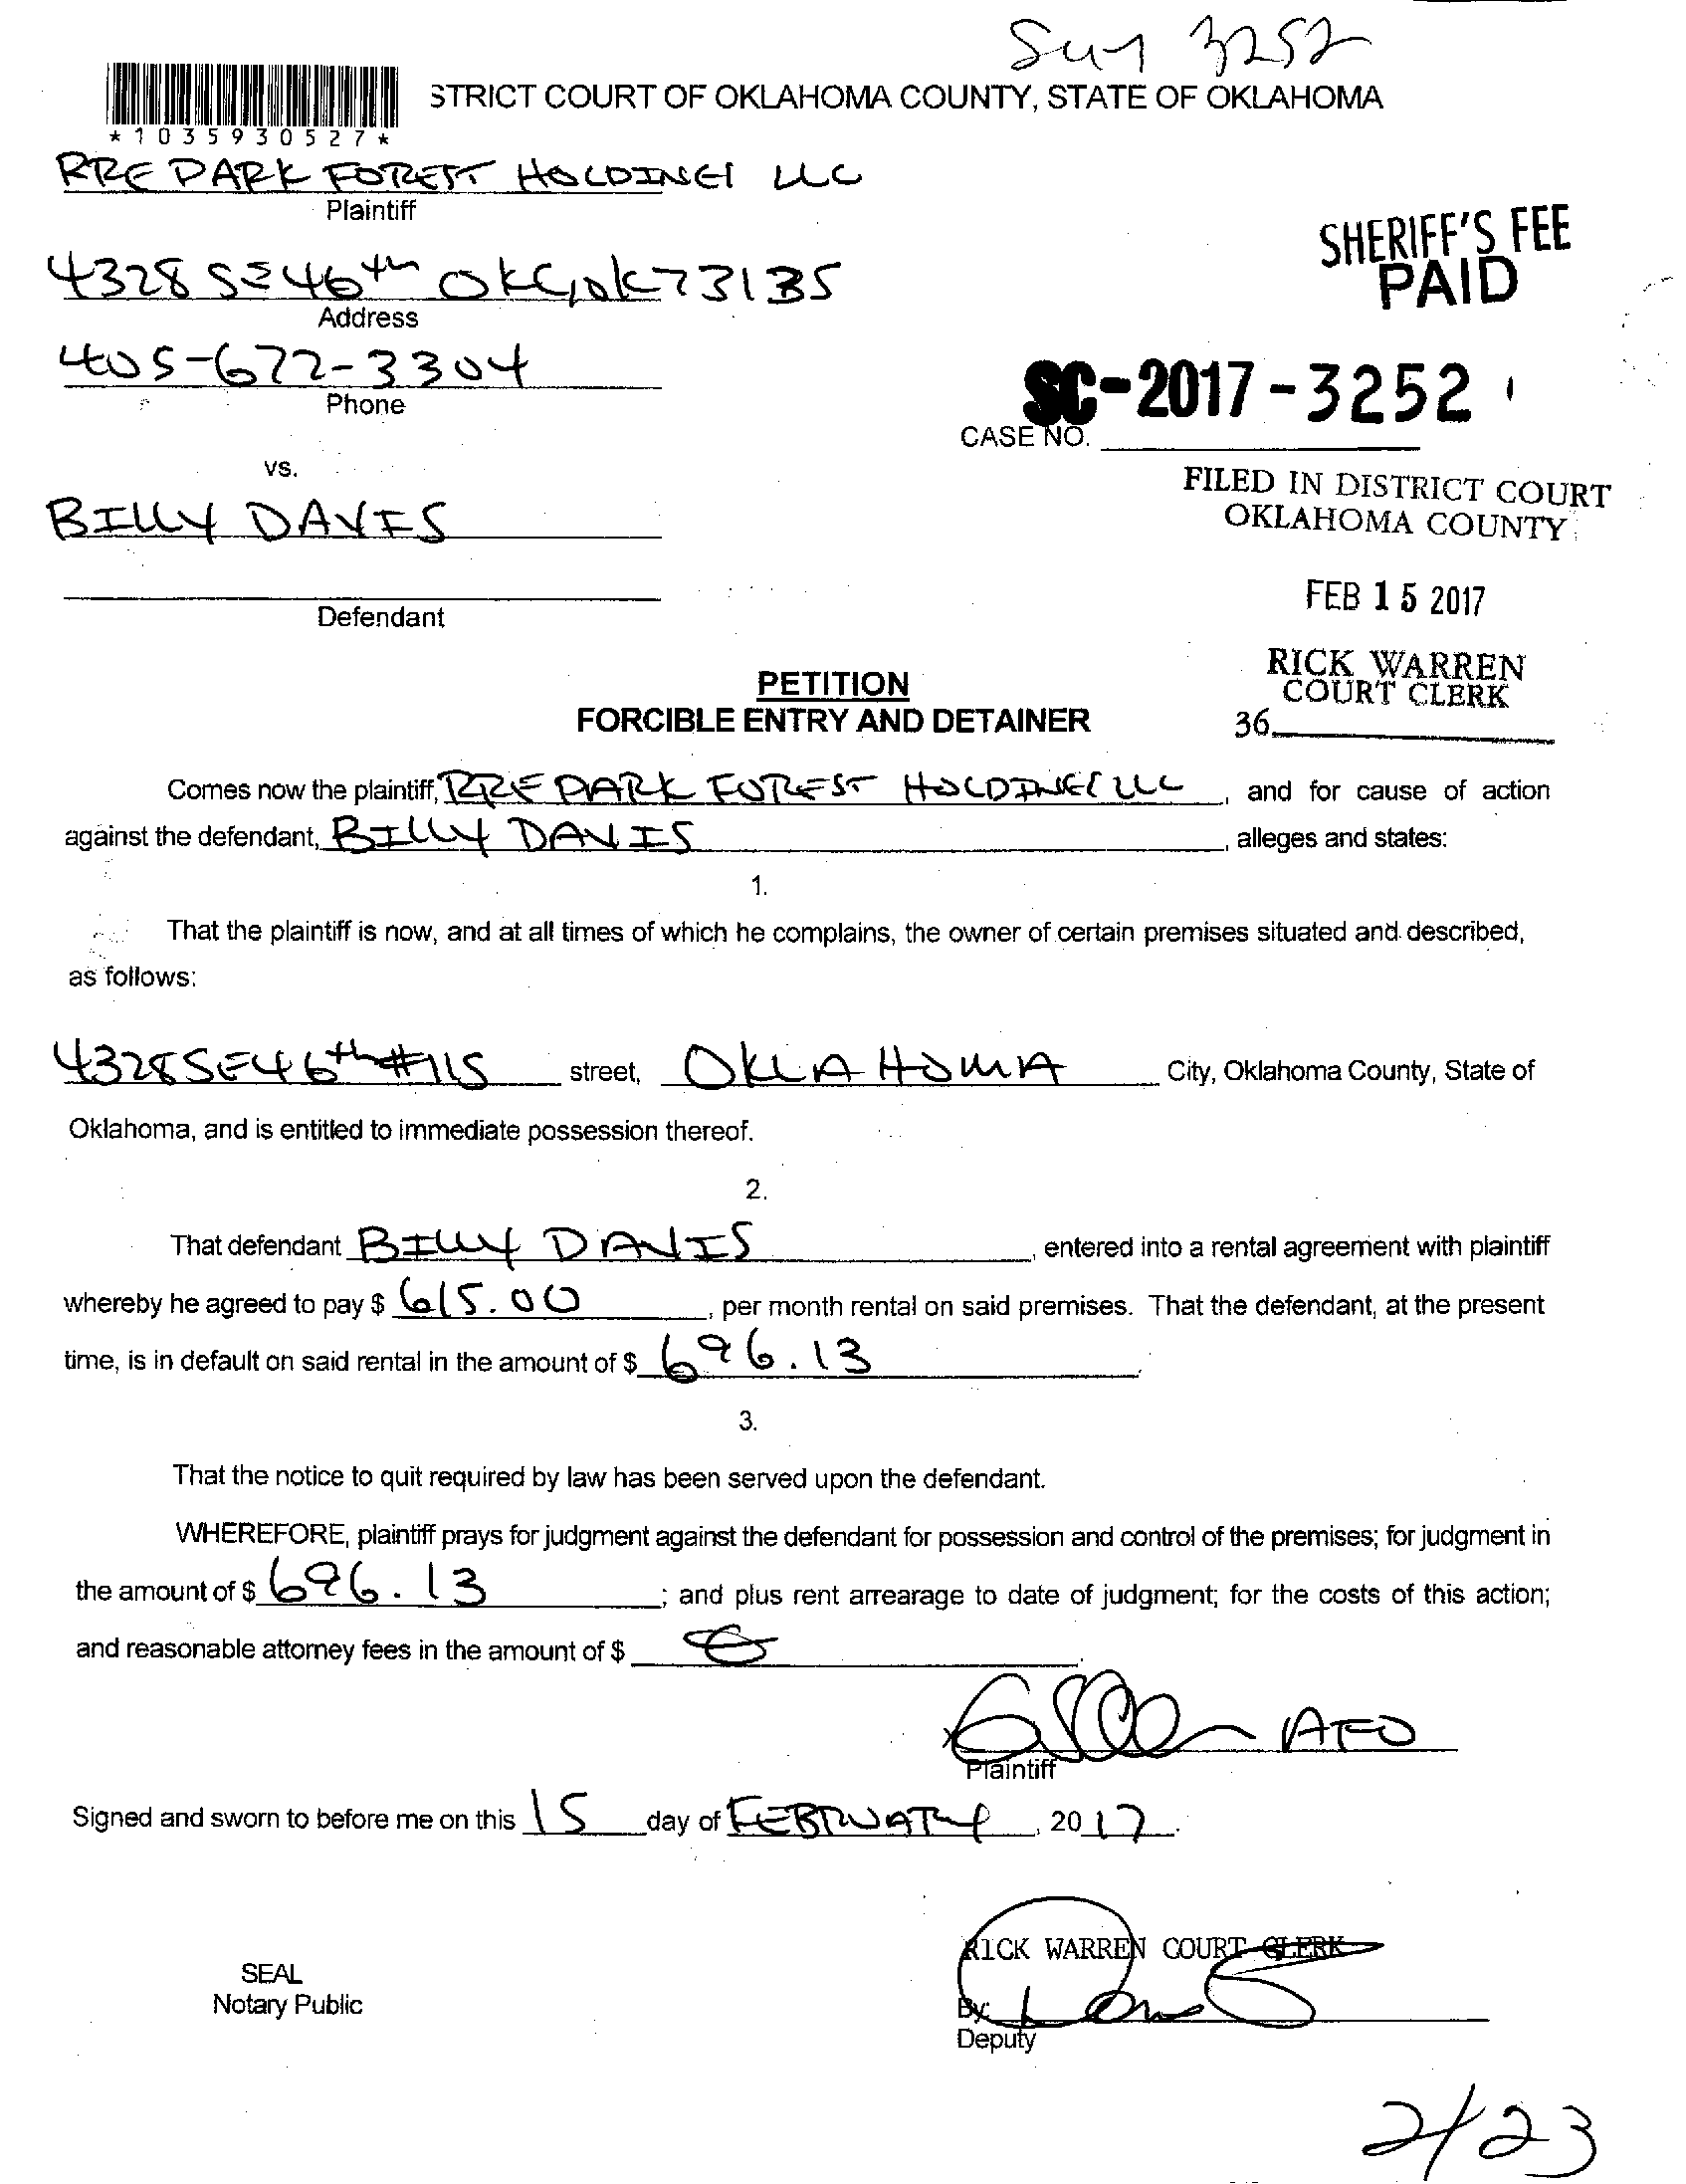 3252
STRICT COURT OF OKLAHOMA COUNTY, STATE OF OKLAHOMA
*1035930527*
RRE PARK FOREST HOLDINGS LLC
Plaintiff
4328 SE 46th OKC, OK 73135
Address
SHERIFF'S FEE
PAID
405-672-3304
Phone
SC-2017-3252
CASE NO.
vs.
BILLY DAVIS
Defendant
FILED IN DISTRICT COURT
OKLAHOMA COUNTY
FEB 15 2017
RICK WARREN
COURT CLERK
36
PETITION
FORCIBLE ENTRY AND DETAINER
Comes now the plaintiff, RRE PARK FOREST HOLDINGS LLC, and for cause of action
against the defendant, BILLY DAVIS, alleges and states:
1.
That the plaintiff is now, and at all times of which he complains, the owner of certain premises situated and described,
as follows:
4328 SE 46th #115 street, OKLAHOMA City, Oklahoma County, State of
Oklahoma, and is entitled to immediate possession thereof.
2.
That defendant BILLY DAVIS, entered into a rental agreement with plaintiff
whereby he agreed to pay $ 615.00, per month rental on said premises. That the defendant, at the present
time, is in default on said rental in the amount of $ 696.13.
3.
That the notice to quit required by law has been served upon the defendant.
WHEREFORE, plaintiff prays for judgment against the defendant for possession and control of the premises; for judgment in
the amount of $ 696.13; and plus rent arrearage to date of judgment; for the costs of this action;
and reasonable attorney fees in the amount of $
Plaintiff
Signed and sworn to before me on this 15 day of FEBRUARY, 2017.
SEAL
Notary Public
RICK WARREN COURT CLERK
By:
Deputy
2/23